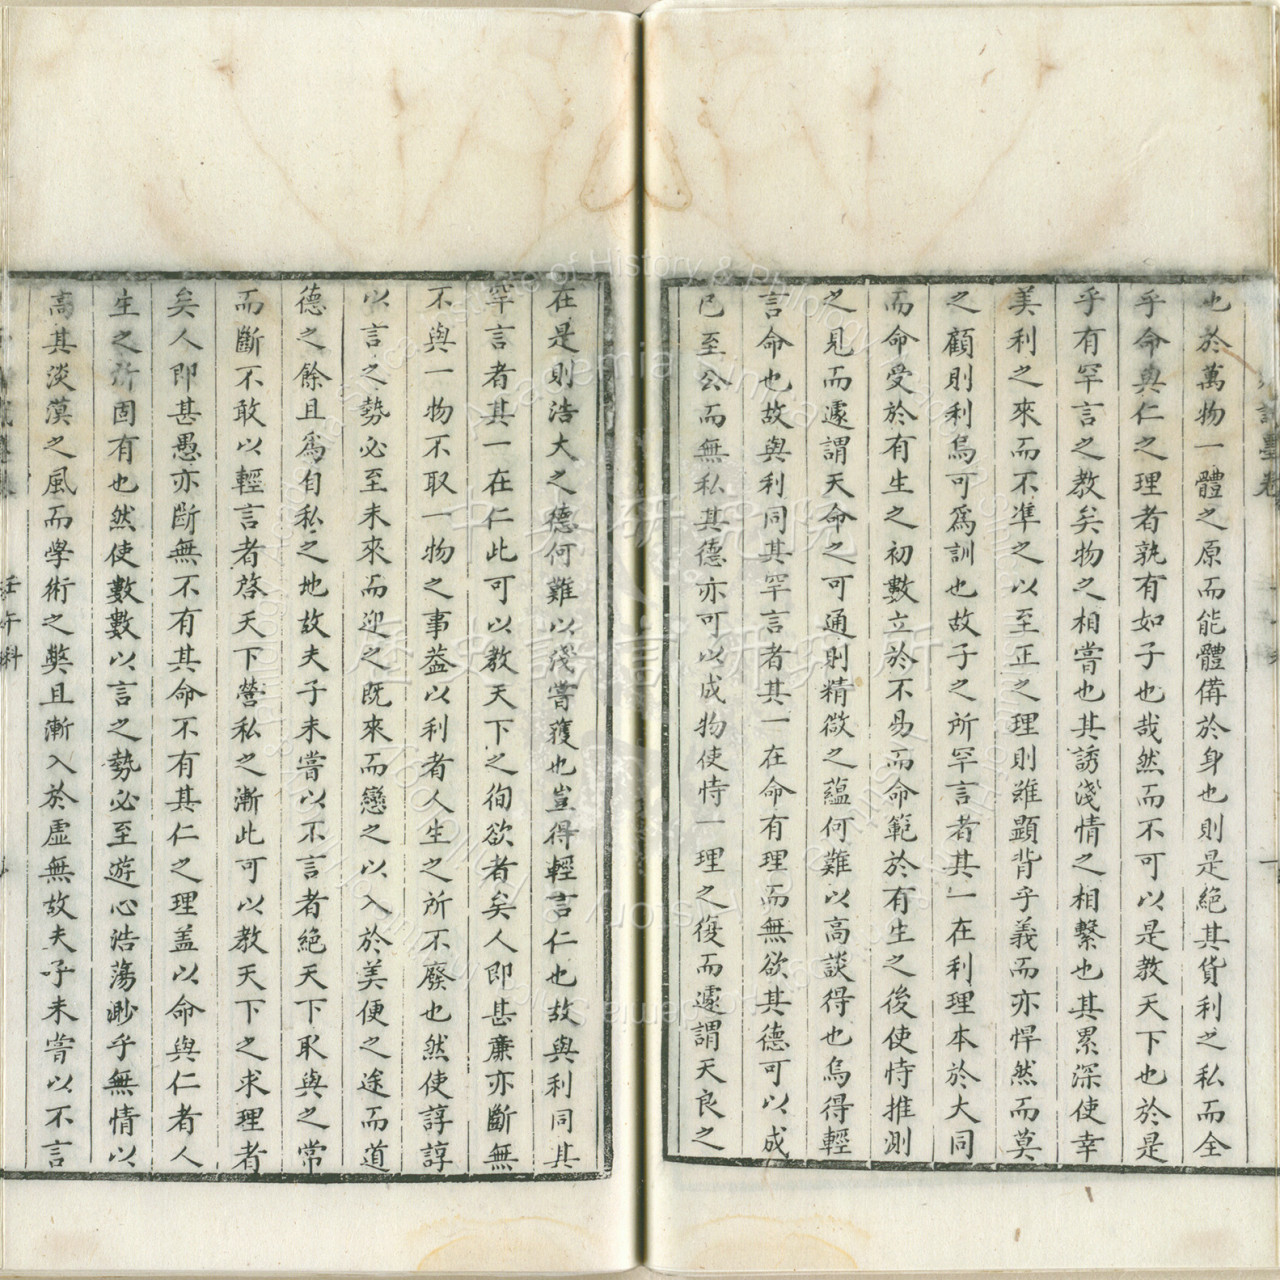 也於萬物一體之原而能體備於身也則是絕其貨利之私而全
乎命與仁之理者孰有如子也哉然而不可以是教天下也於是
乎有罕言之教矣物之相嘗也其誘淺情之相繫也其累深使幸
美利之來而不準之以至正之理則雖顯背乎義而亦悍然而莫
之顧則利烏可為訓也故子之所罕言者其一在利理本於大同
而命受於有生之初數立於不易而命範於有生之後使恃推測
之見而遽謂天命之可通則精微之蘊何難以高談得也烏得輕
言命也故與利同其罕言者其一在命有理而無欲其德可以成
己至公而無私其德亦可以成物使恃一理之復而遽謂天良之
在是則浩大之德何難以淺嘗獲也豈得輕言仁也故與利同其
罕言者其一在仁此可以教天下之徇欲者矣人即甚廉亦斷無
不與一物不取一物之事葢以利者人生之所不廢也然使諄諄
以言之勢必至未來而迎之既來而戀之以入於美便之途而道
德之餘且為自私之地故夫子未嘗以不言者絕天下取與之常
而斷不敢以輕言者啓天下營私之漸此可以教天下之求理者
矣人即甚愚亦斷無不有其命不有其仁之理蓋以命與仁者人
生之所固有也然使數數以言之勢必至遊心浩蕩渺乎無情以
高其淡漠之風而學術之獘且漸入於虛無故夫子未嘗以不言
壬午科